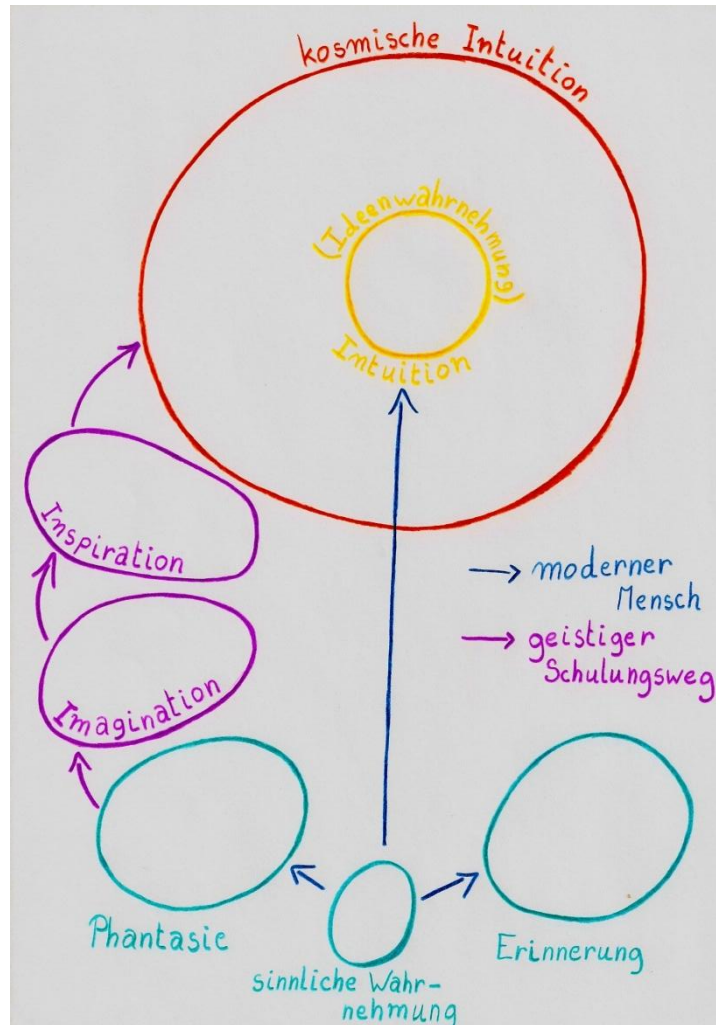 kosmische Intuition
(Ideenwahrnehmung)
Intuition
Inspiration
Imagination
→ moderner
Mensch
→ geistiger
Schulungsweg
Phantasie
sinnliche Wahr-
nehmung
Erinnerung